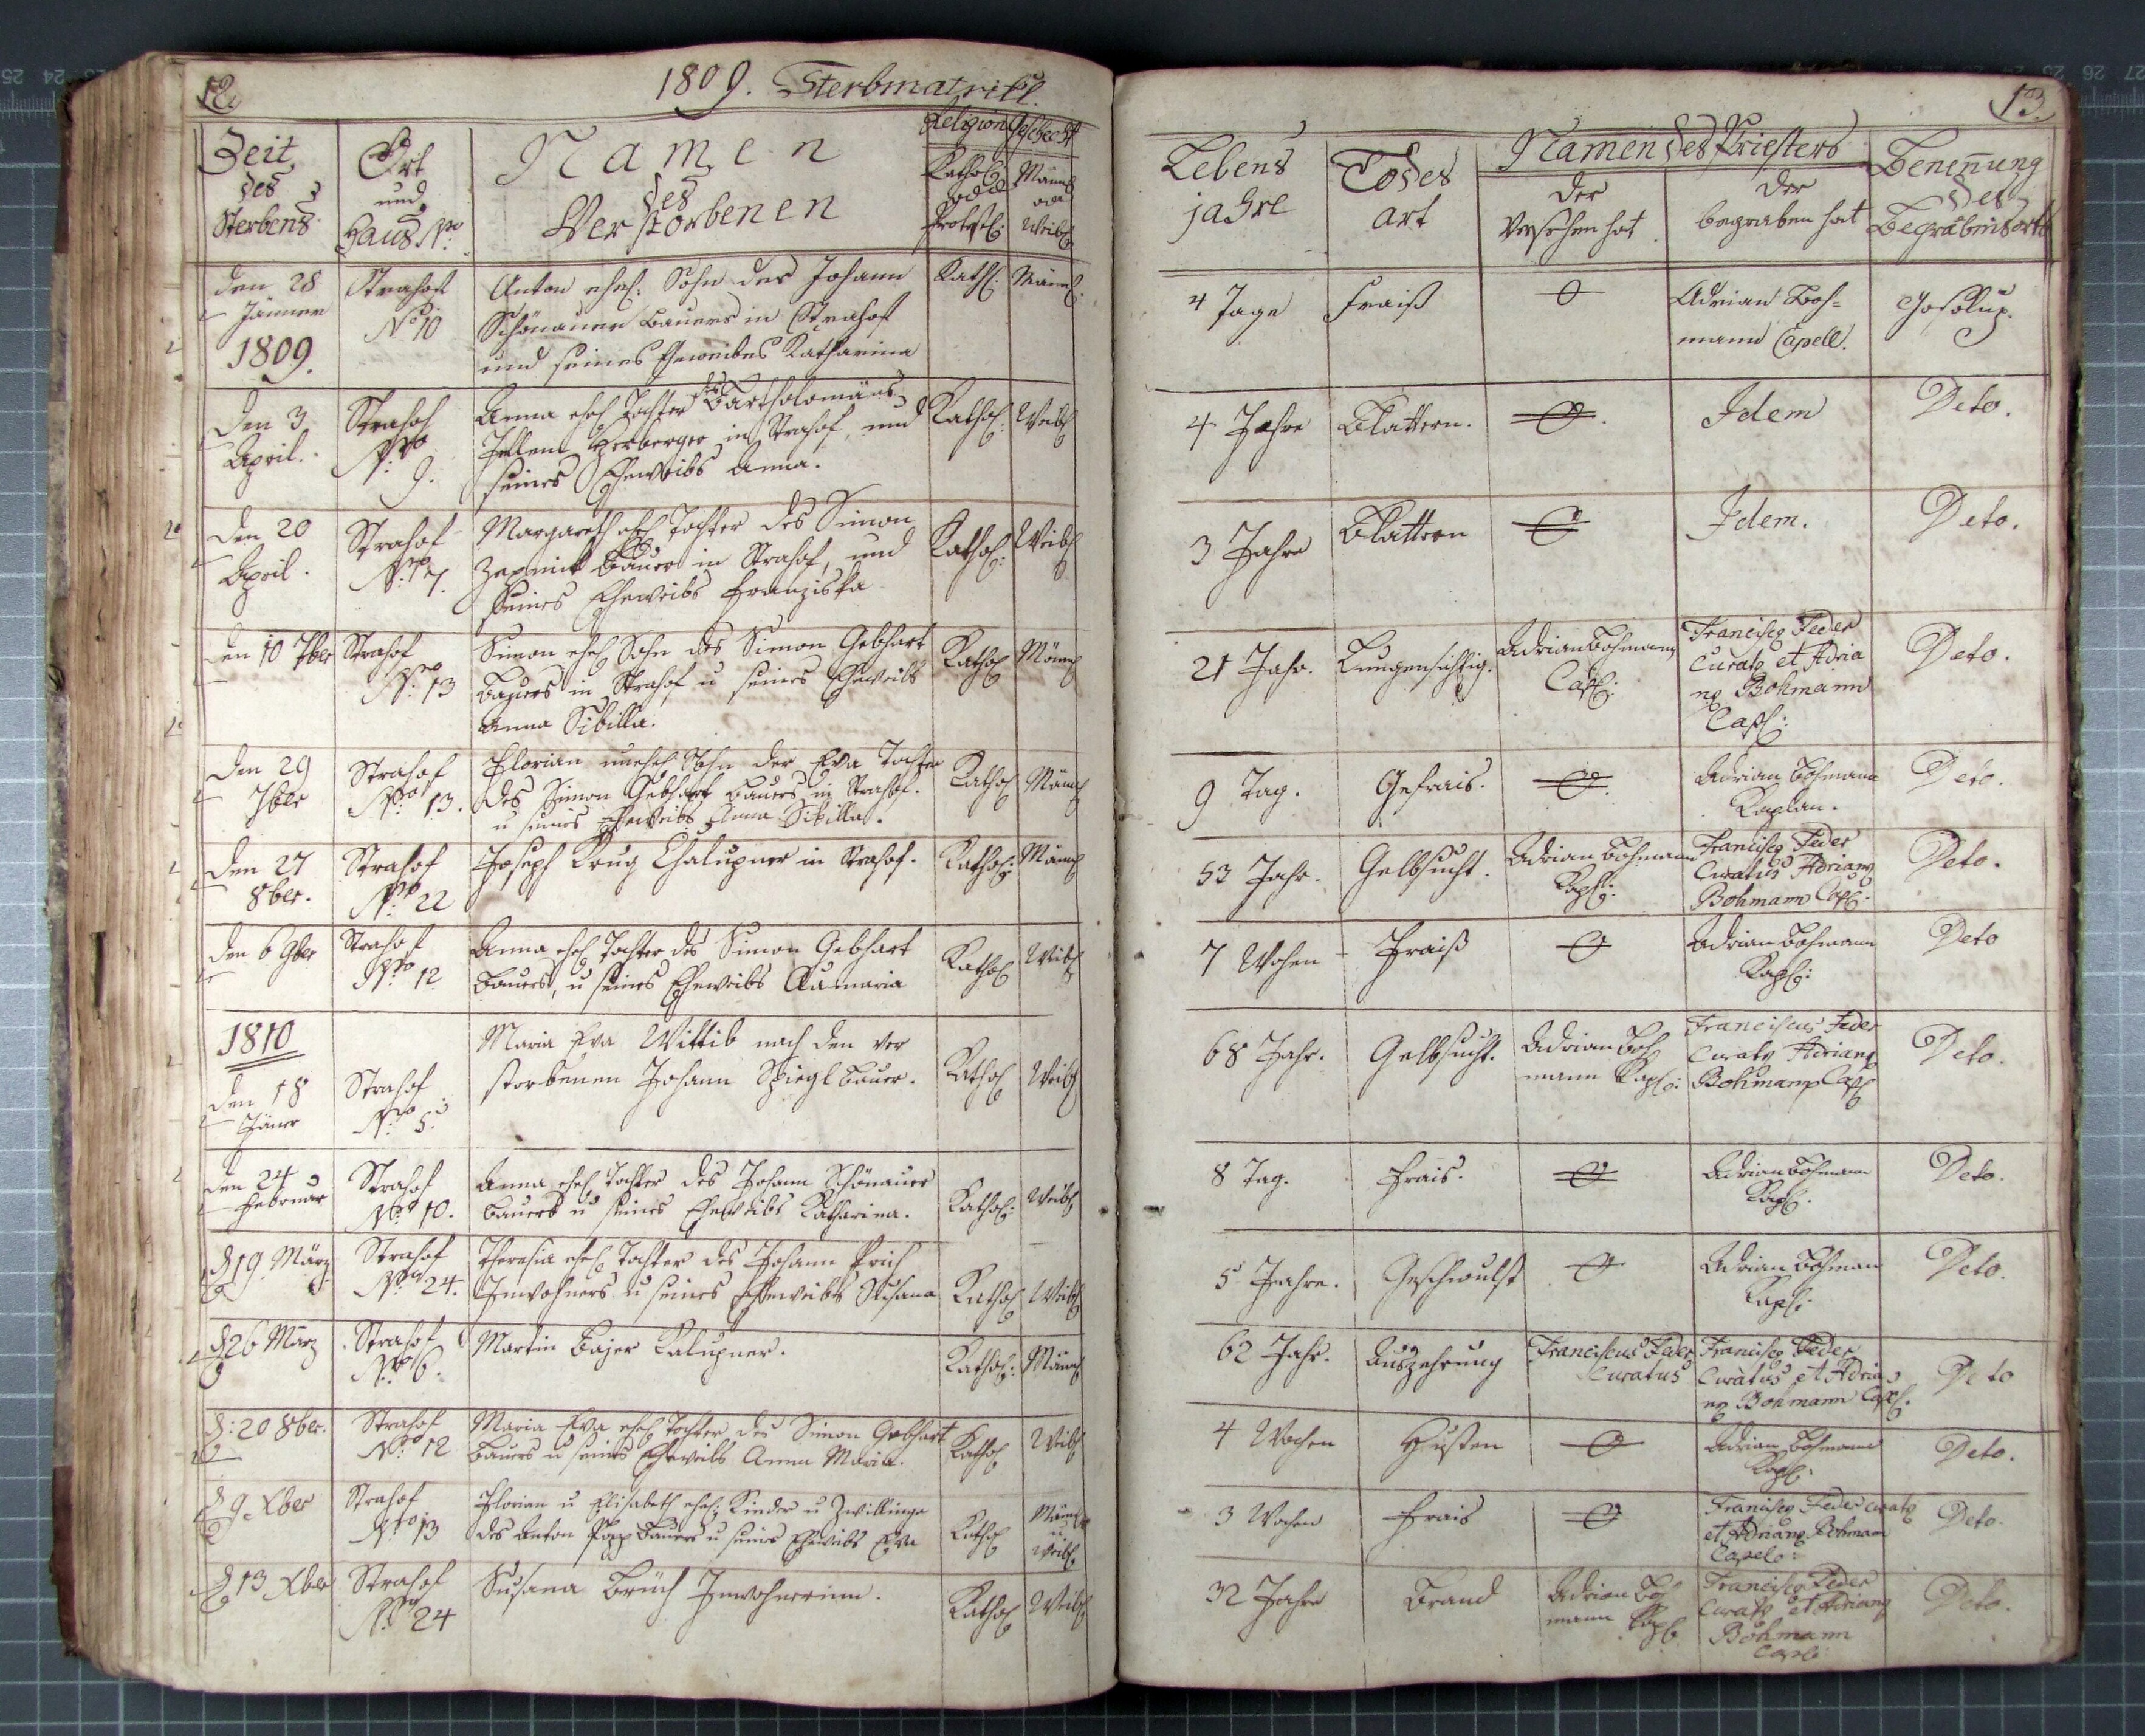 12.
1809. Sterbmatrikl.
Zeit
des
Sterbens
Ort
und
Haus Nro
Namen
des
Verstorbenen
Religion
Kathol:
oder
Protest:
Geschecht
Mänl
oder
Weibl:
den 28
Jänner
1809.
Strahof
No 10
Anton ehel: Sohn des Johann
Schönauer Bauers in Strahof
und seines Eheweibes Katharina
Kathl:
Mänl:
den 3
April.
Strahof
Nro
9.
Anna ehel Tochter des Bartholomäus
Herberger in Strahof, und
seines Eheweibs Anna.
Kathol:
Weibl
den 20
April.
Strahof
Nro 7.
Margareth ehel Tochter des Simon
Bauer in Strahof, und
Seines Eheweibs Franziska
Kathol:
Weibl
den 10 7ber
Strahof
Nro 13
Simon ehel Sohn des Simon Gebhart
Bauers in Strahof u seines Eheweibs
Anna Sibilla.
Kathol
Mänl
den 29
7ber
Strahof
Nro 13.
Florian unehel Sohn der Eva Tochter
des Simon Gebhart Bauers in Strahof.
u seines Eheweibs Anna Sibilla.
Kathol
Mänl
den 27
8ber.
Strahof
Nro 22
Joseph Krug Chalupner in Strahof.
Kathol:
Mänl
den 6 9ber
Strahof
Nro 12
Anna ehel Tochter des Simon Gebhart
Bauers, u seines Eheweibs Anamaria
Kathol
Weibl
1810
den 18
Jäner
Strahof
Nro 5.
Maria Eva Wittib nach den ver
storbenen Johann Spiegl Bauer.
Kathol
Weibl
den 24
Februar
Strahof
Nro 10.
Anna ehel Tochter des Johann Schönauer
Bauers u seines Eheweibs Katharina.
Kathol:
Weibl
d 19 März
Strahof
Nro 24.
Theresia ehel Tochter des Johann
Inwohners u seines Eheweibs Susana
Kathol
Weibl
d 26 März
Strahof
Nro 6.
Martin Bajer Kalupner.
Kathol:
Mänl
d: 20 8ber.
Strahof
Nro 12
Maria Eva ehel Tochter des Simon Gebhart
Bauers u seines Eheweibs Anna Maria.
Kathol
Weibl
d 9 Xber
Strahof
Nro 13
Florian u Elisabeth ehel: Kinder u Zwillinge
des Anton Popp Bauers u seines Eheweibs Eva
Kathol
Mänl
u
Weibl
d 13 Xber
Strahof
Nro 24
Susana Brüch Inwohnerinn.
Kathol
Weibl
13.
Lebens
jahre
Todes
art
Namen des Priesters
der
Versehen hat
der
begraben hat
Benennung
des
Begräbnisorts
4 Tage
Fraiß
0
Adrian Boh=
mann Capell.
4 Jahre
Blattern.
0.
Idem
Deto.
3 Jahre
Blattern
0
Idem.
Deto.
21 Jahr.
Lungensichtig.
Adrian Bohmann
Capl:
Francisco Feder
Curato et Adria
no Bohmann
Capl:
Deto.
9 Tag.
Gefrais.
0.
Adrian Bohmann
Kaplan.
Deto.
53 Jahr.
Gelbsucht.
Adrian Bohmann
Kapl:
Francisco Feder
Curatus Adriano
Bohmann Capl:
Deto.
7 Wohen
Fraiß
0
Adrian Bohmann
Kapl:
Deto
68 Jahr.
Gelbsucht.
Adrian Boh
mann Kapl:
Franciscus Feder
Curato Adriano
Bohmann Capl
Deto.
8 Tag.
Frais.
0
Adrian Bohmann
Kapl.
Deto.
5 Jahre.
Geschwulst
0
Adrian Bohman
Kapl:
Deto.
62 Jahr.
Auszehrung
Franciscus Feder
Curatus
Francisco Feder
Curatus et Adria
no Bohmann Capl.
Deto
4 Wochen
Husten
0
Adrian Bohmann
Kapl:
Deto.
3 Wochen
Frais
0
Francisco Feder Curato
et Adriano Bohmann
Capelo:
Deto.
32 Jahre
Brand
Adrian Boh
mann Kapl.
Francisco Feder
Curato et Adriano
Bohmann
Deto.